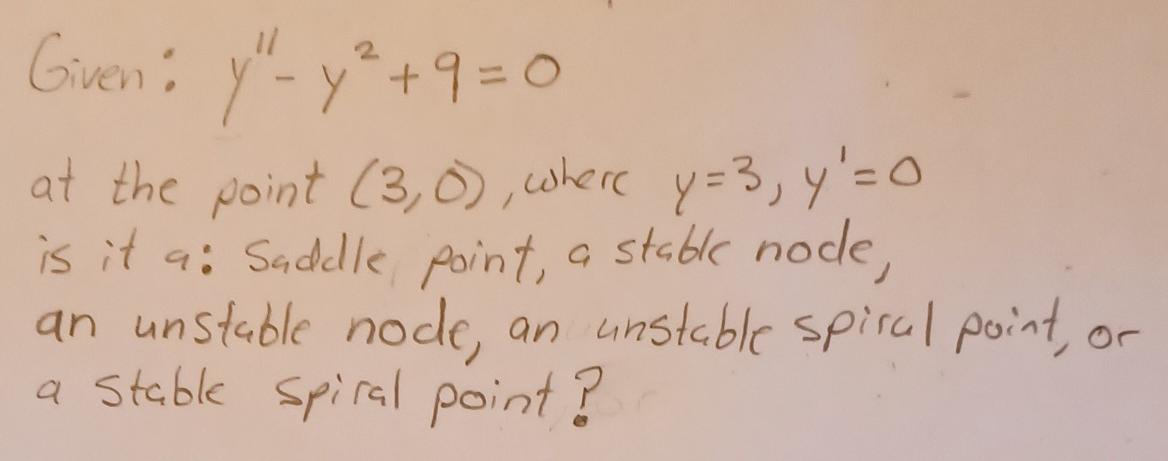 Given: y'' - y² + 9 = 0
at the point (3,0), where y=3, y'=0
is it a: Saddle point, a stable node,
an unstable node, an unstable spiral point, or
a stable spiral point?